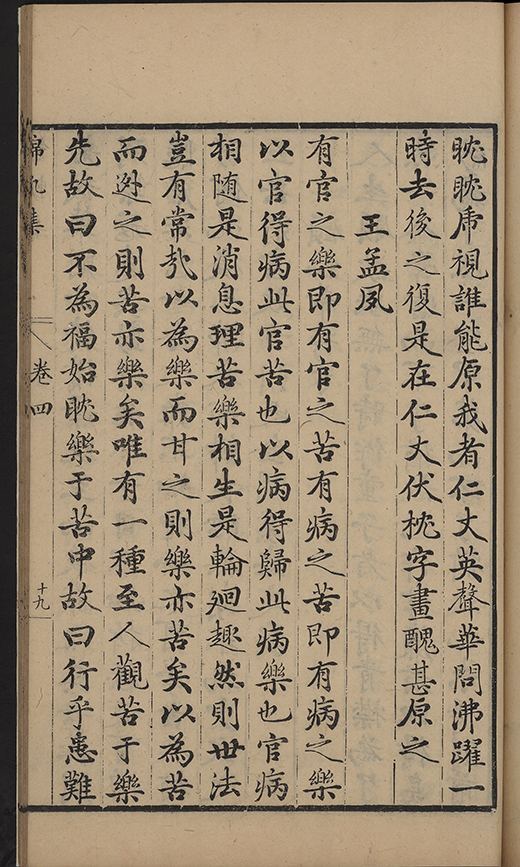 眈眈虎視誰能原我者仁丈英聲華問沸躍一
時去後之復是在仁丈伏枕字畫醜甚原之
王孟夙
有官之樂即有官之苦有病之苦即有病之樂
以官得病此官苦也以病得歸此病樂也官病
相随是消息理苦樂相生是輪廻趣然則世法
豈有常㢤以為樂而甘之則樂亦苦矣以為苦
而迯之則苦亦樂矣唯有一種至人觀苦于樂
先故曰不為福始眈樂于苦中故曰行乎患難
錦帆集
卷四
十九